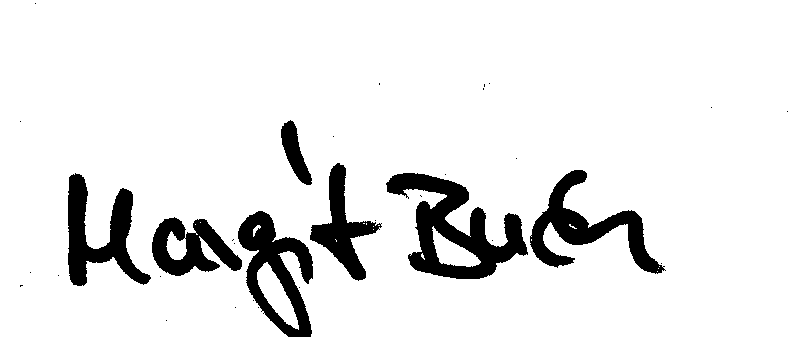 Margit Buch